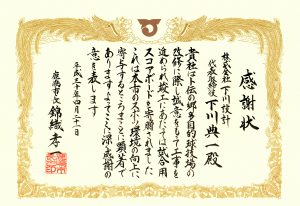 感謝状
株式会社 下川設計
代表取締役 下川典一 殿
貴社は卜伝の郷多目的球技場の
改修に際し誠意をもって工事を
進められ竣工にあたっては試合用
スコアボードを寄贈されました
これは本市のスポーツ環境の向上に
寄与するところまことに顕著で
ありますよってここに深く感謝の
意を表します
平成三十年四月二十一日
鹿嶋市長 錦織孝一